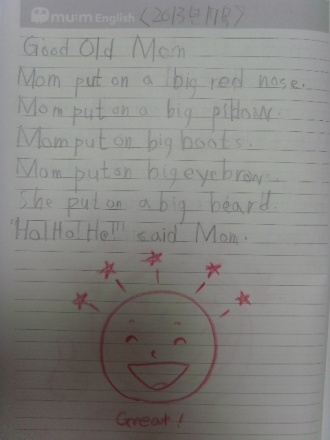 mu:m English (2013년 11월)
Good Old Mom
Mom put on a big red nose.
Mom put on a big pillow.
Mom put on big boots.
Mom put on big eyebrow
She put on a big beard.
"Ho! Ho! Ho!" said Mom.
Great!